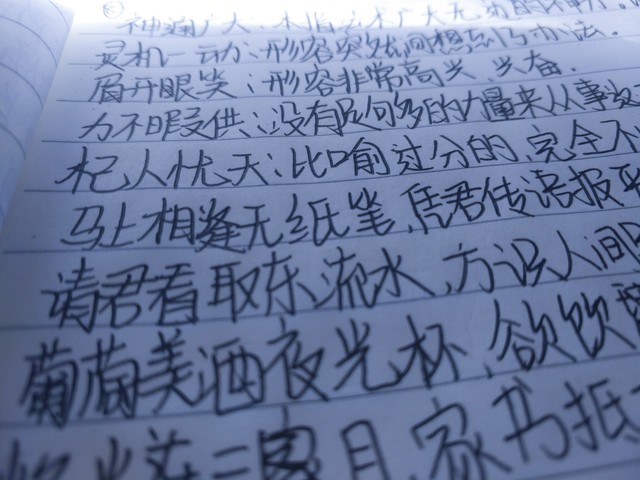 神通广大:本指法术广大无
灵机一动:形容突然间想到了办法.
眉开眼笑:形容非常高兴、兴奋.
力不暇供:没有足够多的力量来从事
杞人忧天:比喻过分的、完全不
马上相缝无纸笔,凭君传语报
请君看取东流水,方识人间
葡萄美酒夜光杯,欲饮
三月,家书抵